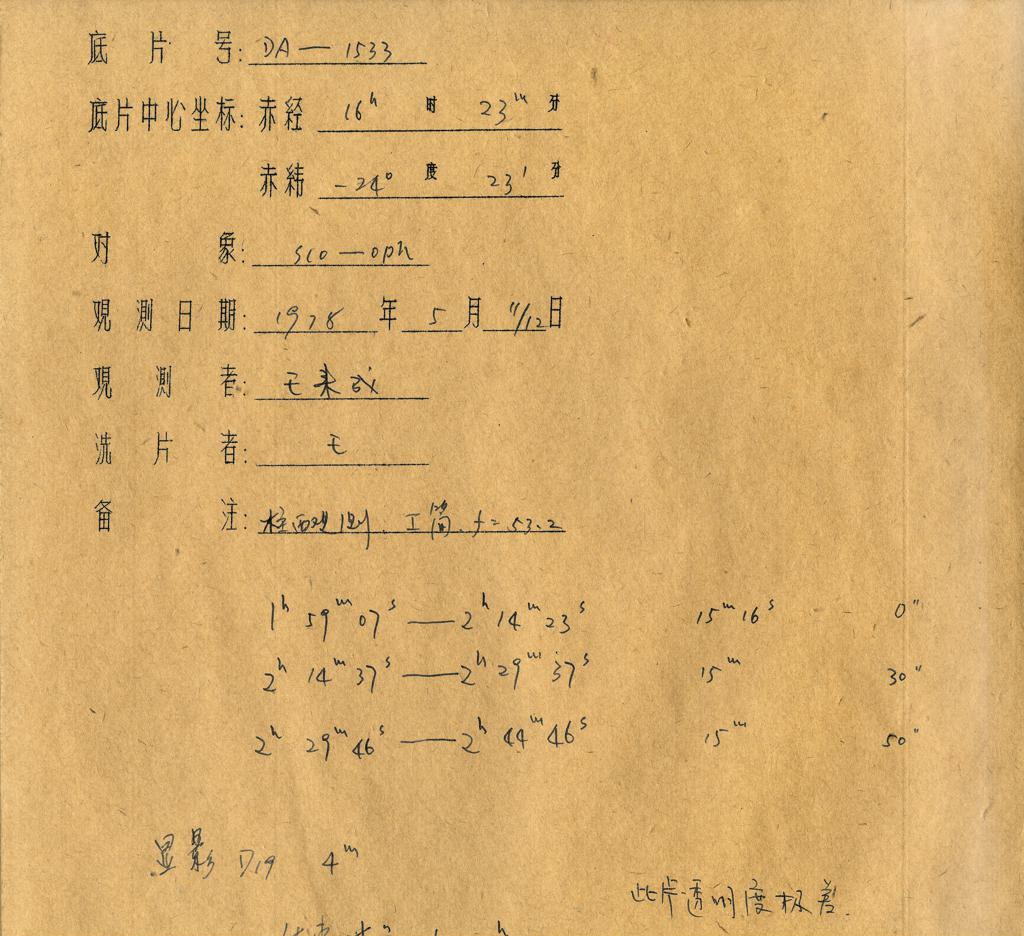 底片号: DA — 1533
底片中心坐标: 赤经 16h 时 23m 分
赤纬 -24° 度 23' 分
对象: sco — oph
观测日期: 1978 年 5 月 11/12 日
观测者: 王来
洗片者: 王
备注: 柱西观测. 工筒. f= 53.2
1h 59m 07s — 2h 14m 23s 15m 16s 0"
2h 14m 37s — 2h 29m 37s 15m 30"
2h 29m 46s — 2h 44m 46s 15m 50"
显影 D19 4m
此片透明度极差.